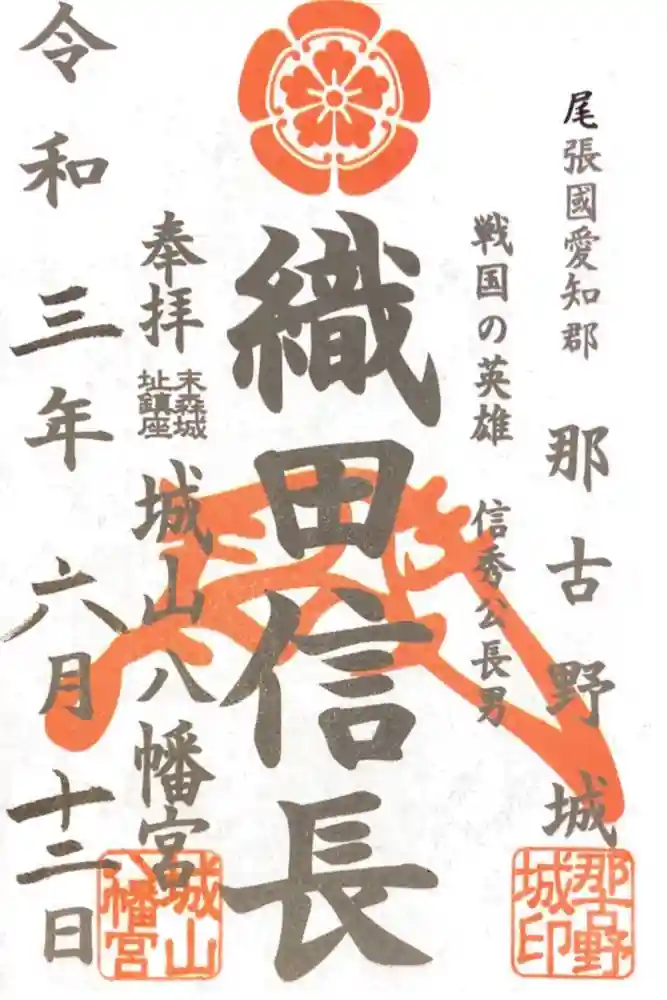 尾張國愛知郡
那古野城
那古野城印
戦国の英雄 信秀公長男
織田信長
奉拝
末森城
址鎮座
城山八幡宮
城山八幡宮
令和三年六月十二日